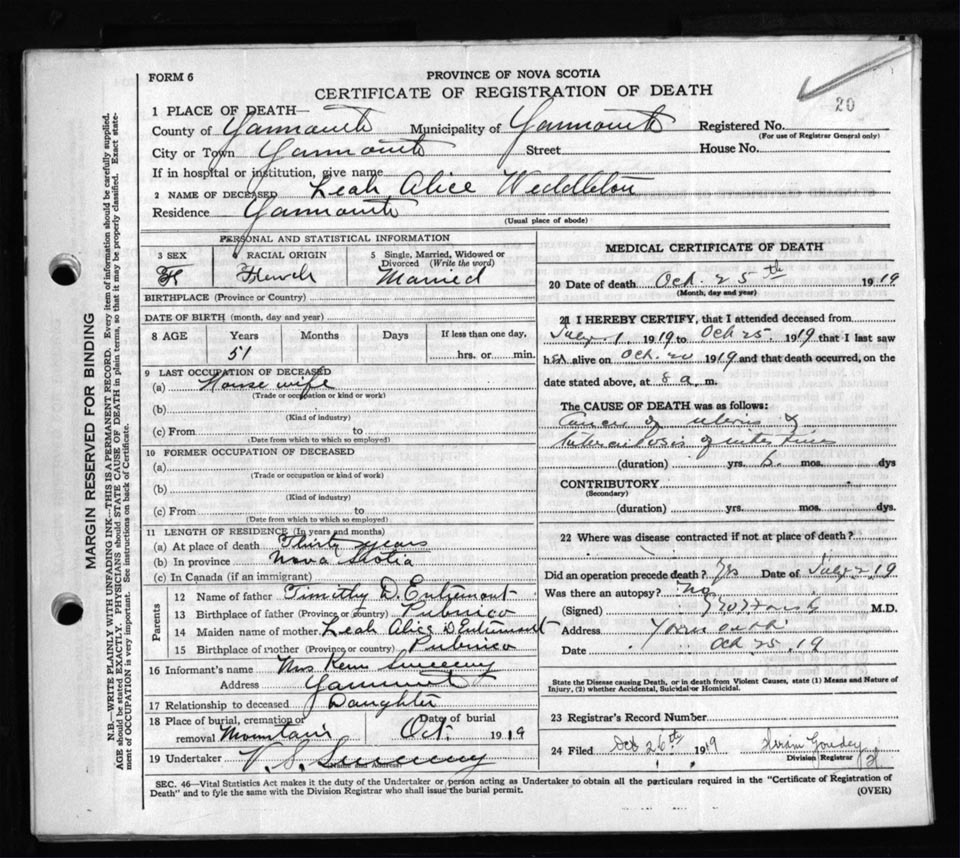 FORM 6
PROVINCE OF NOVA SCOTIA
CERTIFICATE OF REGISTRATION OF DEATH
20
1 PLACE OF DEATH—
County of Yarmouth Municipality of Yarmouth Registered No.
(For use of Registrar General only)
City or Town Yarmouth Street House No.
If in hospital or institution, give name
2 NAME OF DECEASED Leah Alice Weddleton
Residence Yarmouth
(Usual place of abode)
PERSONAL AND STATISTICAL INFORMATION
3 SEX 4 RACIAL ORIGIN 5 Single, Married, Widowed or Divorced (Write the word)
F French Married
BIRTHPLACE (Province or Country)
DATE OF BIRTH (month, day and year)
8 AGE Years Months Days If less than one day,
51 hrs. or min.
9 LAST OCCUPATION OF DECEASED
(a) House wife
(Trade or occupation or kind or work)
(b)
(Kind of industry)
(c) From to
(Date from which to which so employed)
10 FORMER OCCUPATION OF DECEASED
(a)
(Trade or occupation or kind of work)
(b)
(Kind of industry)
(c) From to
(Date from which to which so employed)
11 LENGTH OF RESIDENCE (In years and months)
(a) At place of death Thirty years
(b) In province Nova Scotia
(c) In Canada (if an immigrant)
Parents
12 Name of father Timothy D. Entremont
13 Birthplace of father (Province or country) Pubnico
14 Maiden name of mother Leah Alice D Entremont
15 Birthplace of mother (Province or country) Pubnico
16 Informant's name Mrs Ken Sweeney
Address Yarmouth
17 Relationship to deceased Daughter
18 Place of burial, cremation or removal Mountain Date of burial Oct. 1919
19 Undertaker V. S. Sweeney
(Name and Address)
MEDICAL CERTIFICATE OF DEATH
20 Date of death Oct. 25th 1919
(Month, day and year)
21 I HEREBY CERTIFY, that I attended deceased from
July 1 1919 to Oct 25 1919 that I last saw
h er alive on Oct. 20 1919 and that death occurred, on the
date stated above, at 8 a. m.
The CAUSE OF DEATH was as follows:
Cancer of uterus &
tuberculosis of intestines
(duration) yrs. mos. dys
CONTRIBUTORY
(Secondary)
(duration) yrs. mos. dys.
22 Where was disease contracted if not at place of death?
Did an operation precede death? Yes Date of July 2, 19
Was there an autopsy? No
(Signed) M.D.
Address Yarmouth
Date Oct 25. 19
State the Disease causing Death, or in death from Violent Causes, state (1) Means and Nature of Injury, (2) whether Accidental, Suicidal or Homicidal.
23 Registrar's Record Number
24 Filed Oct 26th 1919 Hiram Goudey
Division Registrar
SEC. 46—Vital Statistics Act makes it the duty of the Undertaker or person acting as Undertaker to obtain all the particulars required in the "Certificate of Registration of
Death" and to fyle the same with the Division Registrar who shall issue the burial permit.
(OVER)
MARGIN RESERVED FOR BINDING
N.B.—WRITE PLAINLY WITH UNFADING INK—THIS IS A PERMANENT RECORD. Every item of information should be carefully supplied.
AGE should be stated EXACTLY. PHYSICIANS should STATE CAUSE OF DEATH in plain terms, so that it may be properly classified. Exact state-
ment of OCCUPATION is very important. See instructions on back of Certificate.